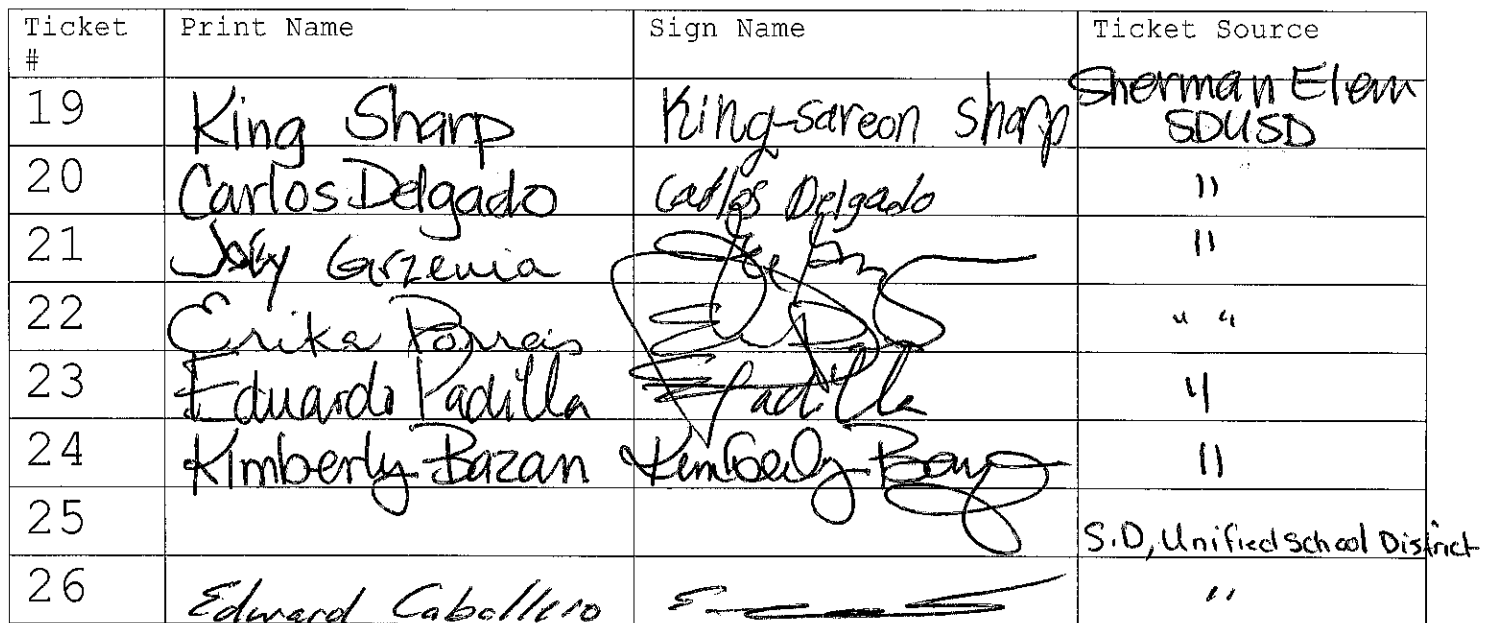 Ticket # Print Name Sign Name Ticket Source
19 King Sharp King-sareon Sharp Sherman Elem SDUSD
20 Carlos Delgado Carlos Delgado "
21 "
22 Erika Porras " "
23 Eduardo Padilla EPadilla "
24 Kimberly Bazan Kimberly Bazan "
25 S.D, Unified School District
26 Edward Caballero "